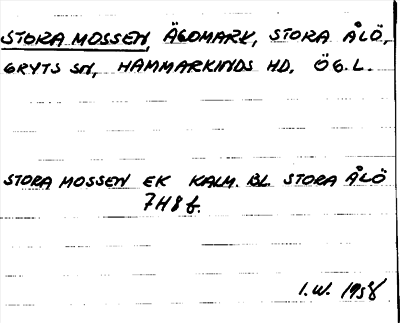 STORA MOSSEN, ÄGOMARK, STORA ÅLÖ,
GRYTS SN, HAMMARKINDS HD, ÖG.L.
STORA MOSSEN EK KALM. BL STORA ÅLÖ
7H8f.
I.W. 1958